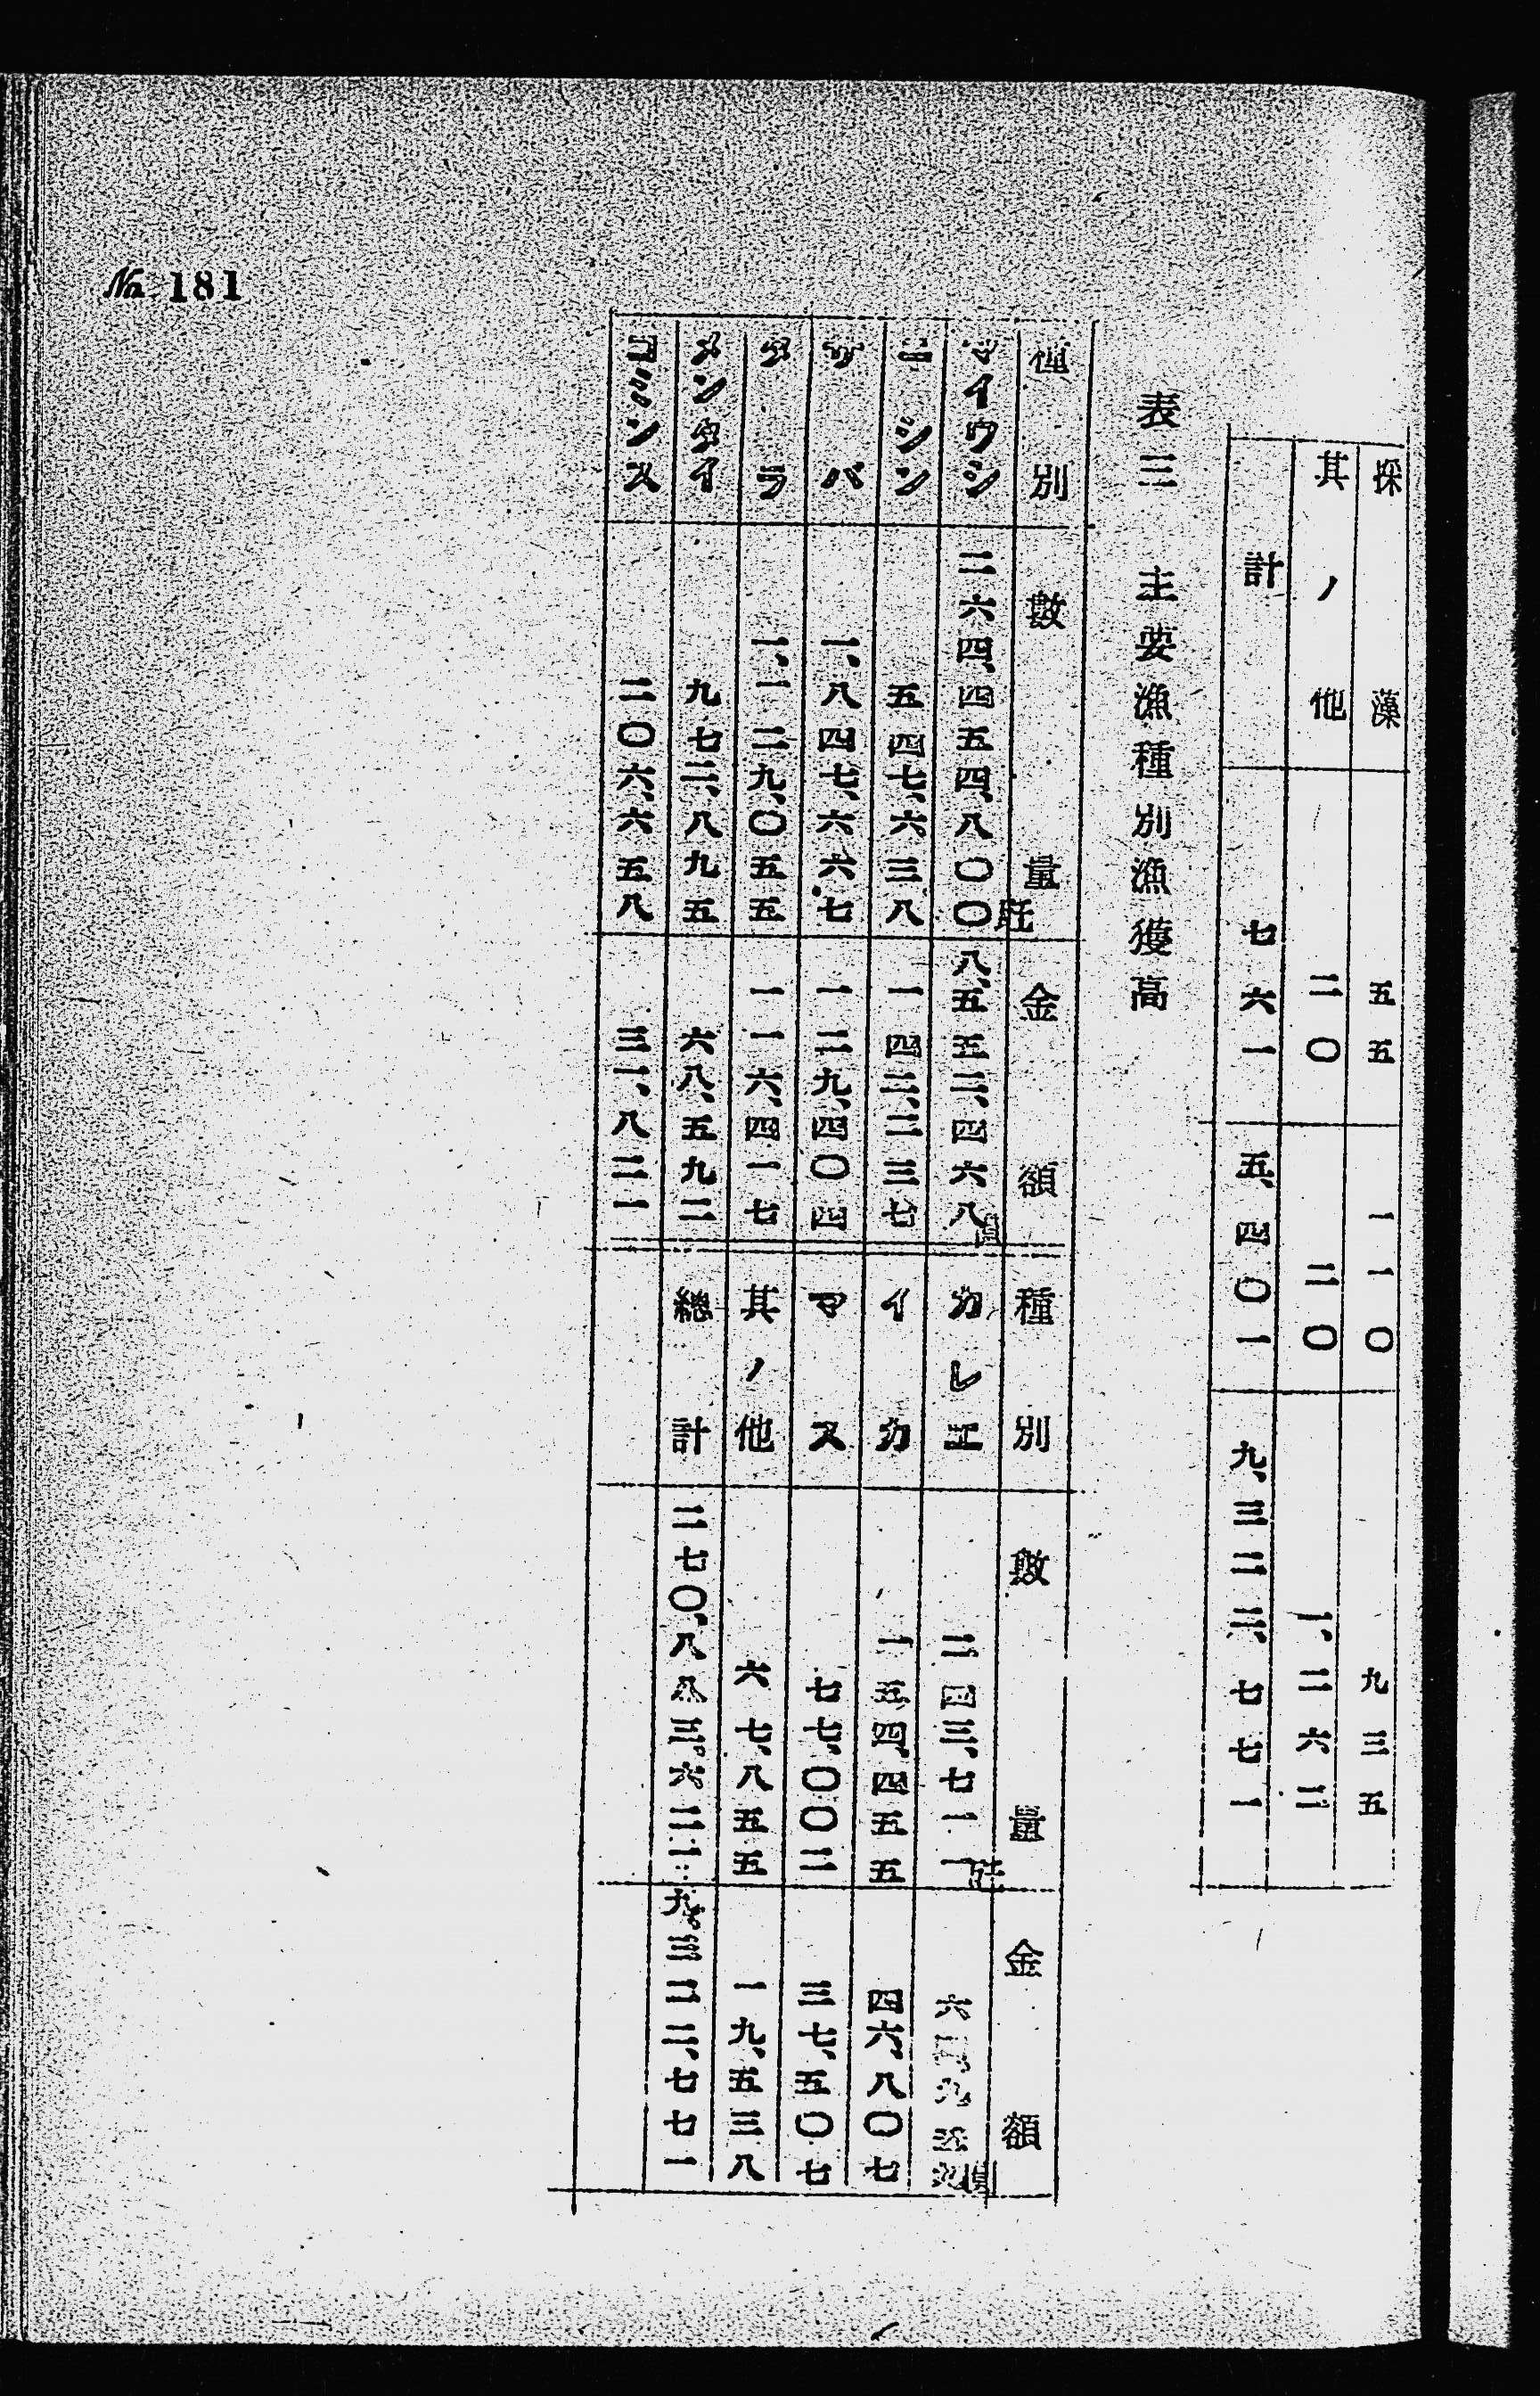 採藻 五五 一一〇 九三五
其ノ他 二〇 二〇 一、二六二
計 七六一 五、四〇一 九、三二二、七七一
表三 主要漁種別漁獲高
種別 數量 金額 種別 數量 金額
マイウシ 二六四、四五四、八〇〇瓩 八、五五三、四六八圓 カレエ 二四三、七一一瓩
ニシン 五四七、六三八 一四二、二三七 イカ 一五四、四五五 四六、八〇七
サバ 一、八四七、六六七 一二九、四〇四 マス 七七、〇〇二 三七、五〇七
タラ 一、一二九、〇五五 一一六、四一七 其ノ他 六七、八五五 一九、五三八
メンタイ 九七二、八九五 六八、五九二 總計 二七〇、八八三、六二一 九、三二二、七七一
コミンス 二〇六、六五八 三一、八二一
No. 181